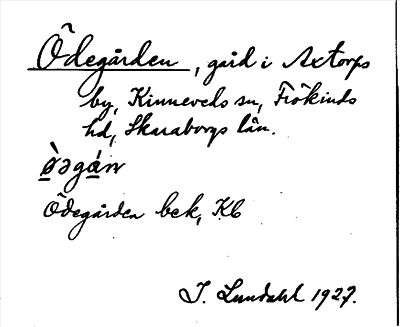 Ödegården, gård i Axtorps
by, Kinneveds sn, Frökinds
hd, Skaraborgs län.
ø̀əgáṇ
Ödegården bek, Kb
I. Lundahl 1927.